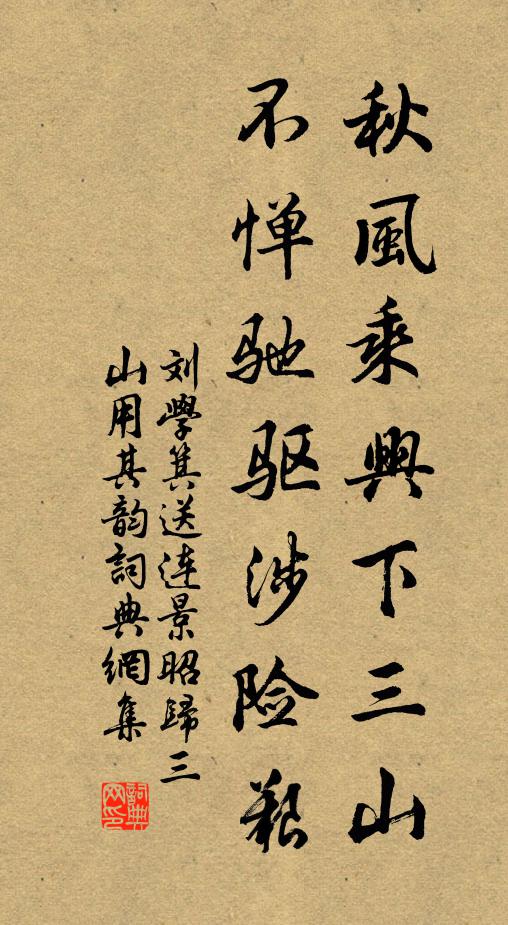 秋風乘興下三山
不惮驰驱涉险艱
刘學箕送连景昭歸三
山用其韵詞典網集
詞典网印